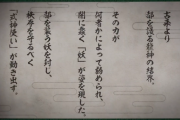 古来より
都を護る龍神の結界。
その力が
何者かによって弱められ、
闇に蠢く「妖」が姿を現した。
都を襲う妖を封し、
秩序を守るべく
「式神使い」が動き出す。